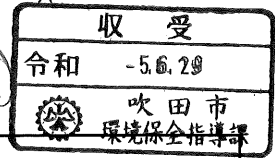 収受
令和 -5.6.29
吹田市
環境保全指導課